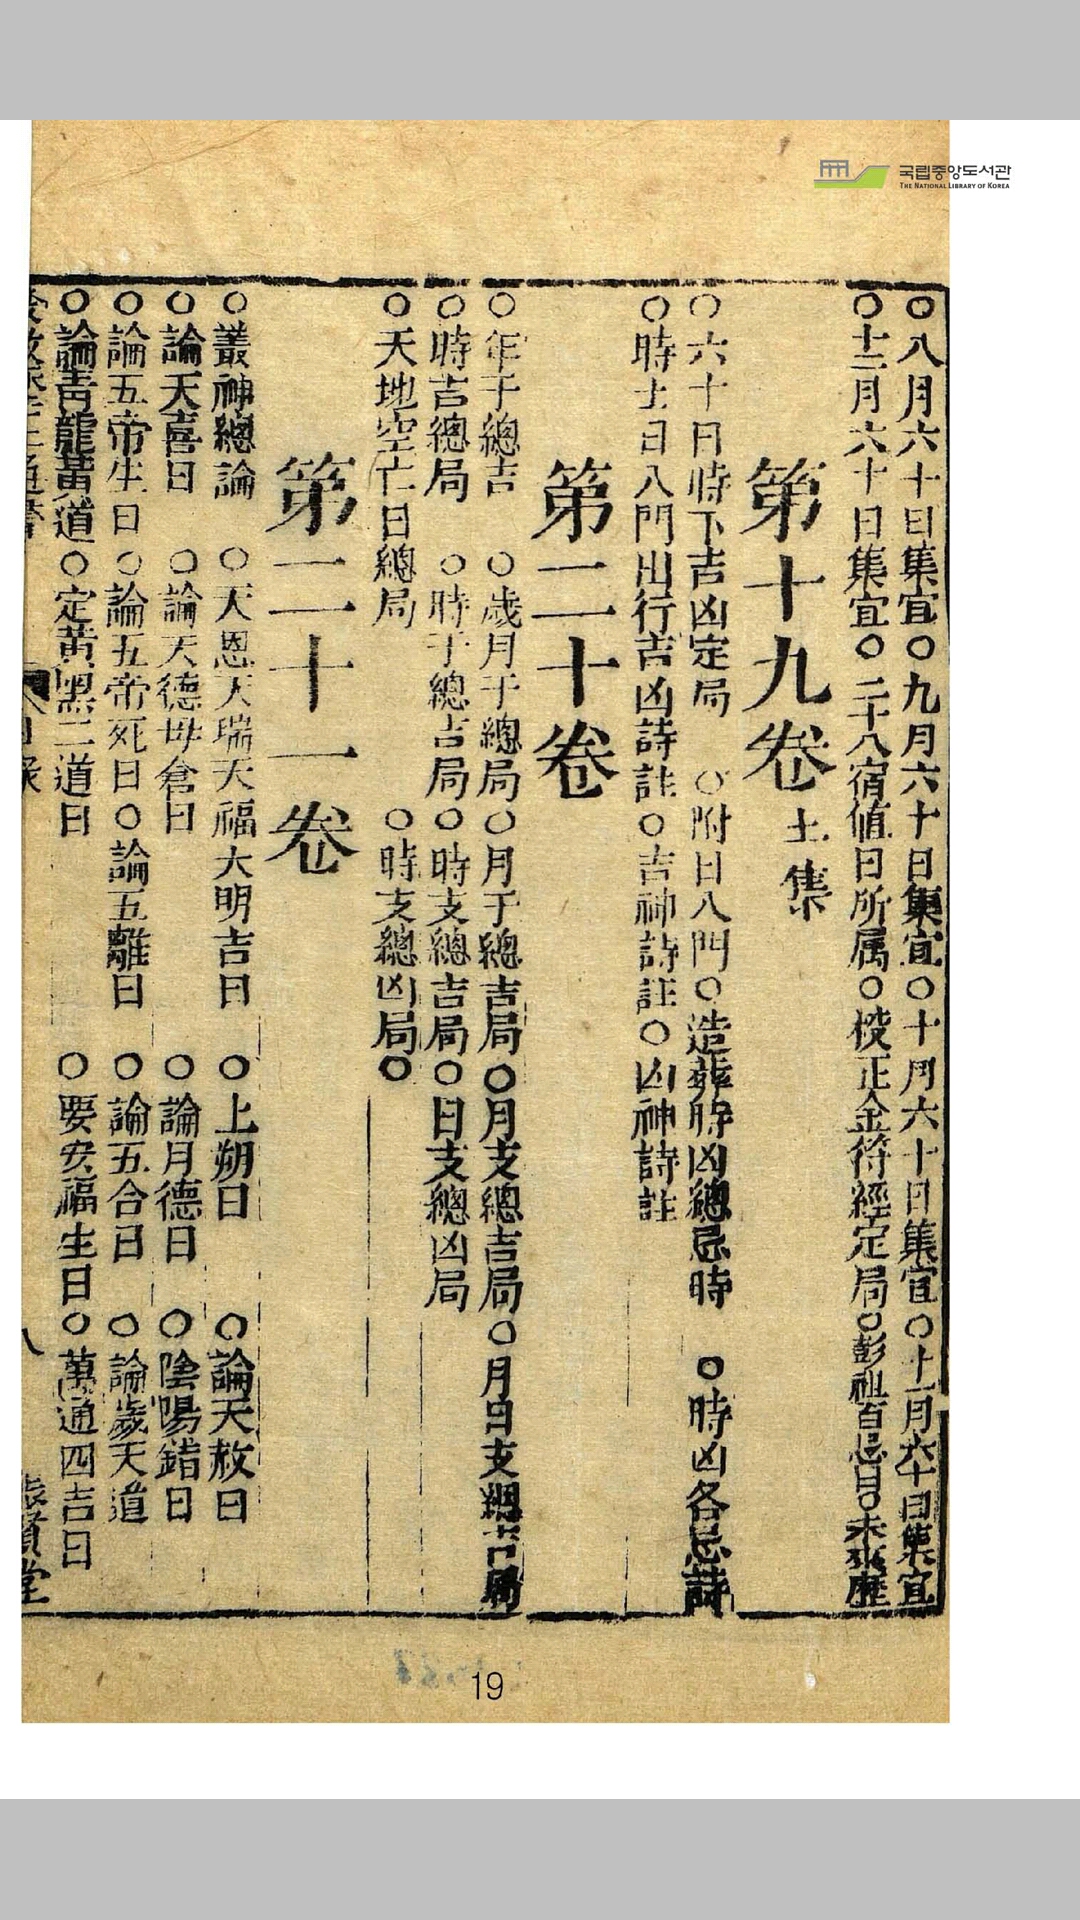 국립중앙도서관
THE NATIONAL LIBRARY OF KOREA
○八月六十日集宜○九月六十日集宜○十月六十日集宜○十一月六十日集宜
○十二月六十日集宜○二十八宿値日所属○校正金符經定局○彭祖百忌日○未來歷
第十九卷 土集
○六十日時下吉凶定局 ○附日八門○造葬時凶總忌時 ○時凶各忌詩
○時士日八門出行吉凶詩註○吉神詩註○凶神詩註
第二十卷
○年于總吉 ○歲月于總局○月于總吉局○月支總吉局○月日支總吉局
○時吉總局 ○時于總吉局○時支總吉局○日支總凶局
○天地空亡日總局 ○時支總凶局○
第二十一卷
○叢神總論 ○天恩天瑞天福大明吉日 ○上朔日 ○論天赦日
○論天喜日 ○論天德母倉日 ○論月德日 ○陰陽錯日
○論五帝生日 ○論五帝死日○論五離日 ○論五合日 ○論歲天道
○論靑龍黃道○定黃黑二道日 ○要安福生日○萬通四吉日
八
19